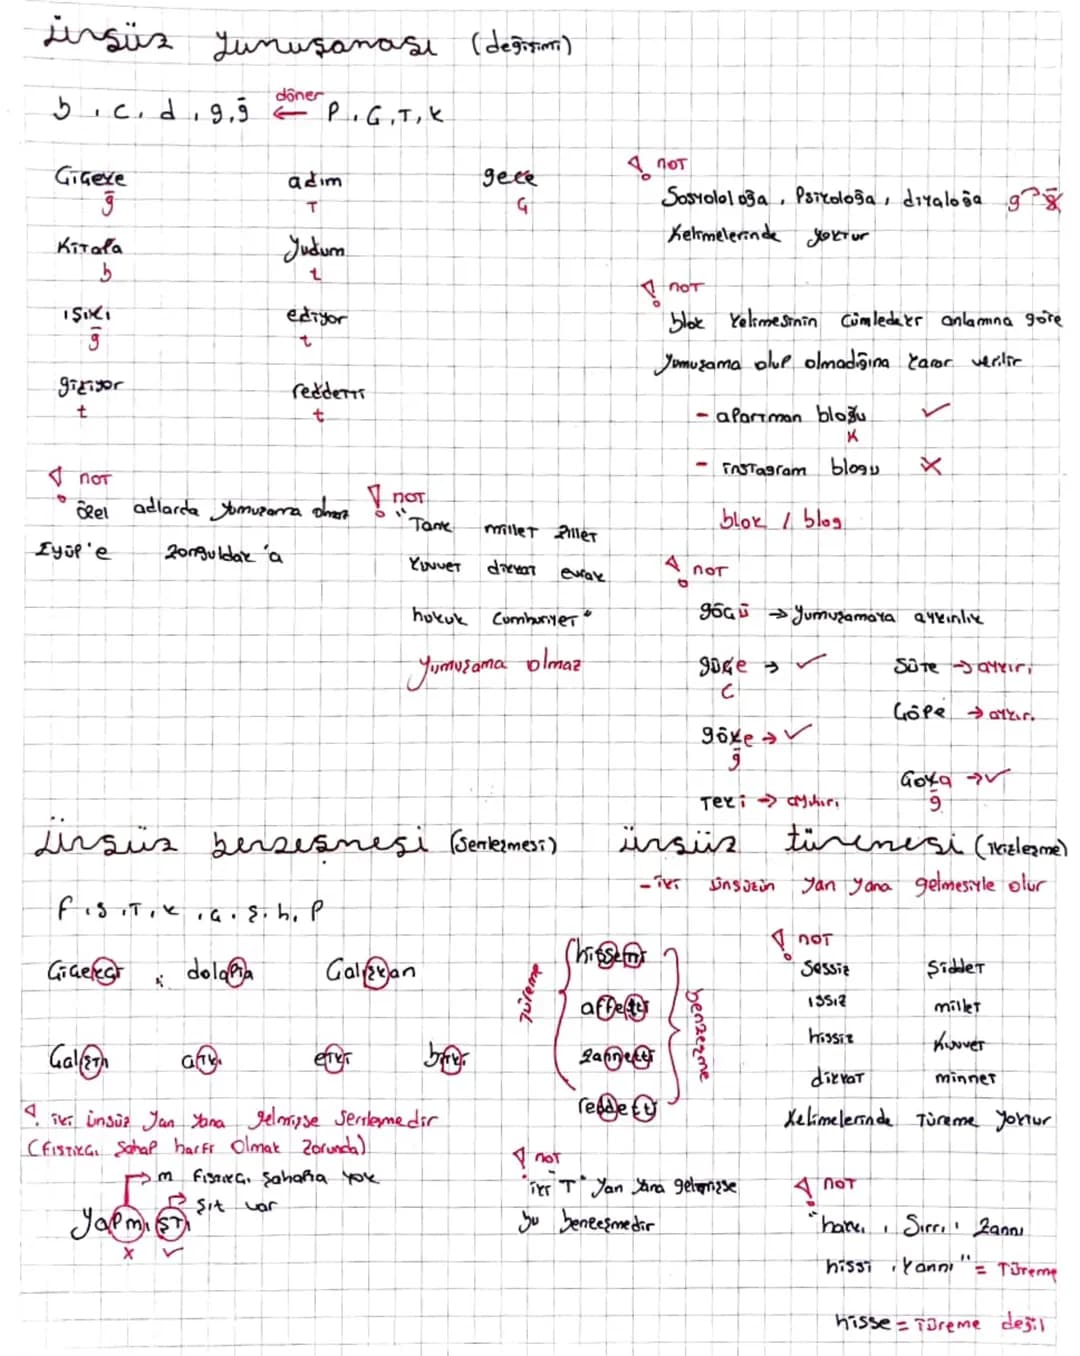 ünsüz yumuşaması (değişimi)
b, c, d, g, ğ ← döner P, Ç, T, K
Çiçeke
ğ
adım
T
gece
Ç
Kitapa
b
Yudum
t
ışıkı
ğ
ediyor
t
gidiyor
t
reddetti
t
! not
Sosyololoğa, Psikoloğa, diyaloğa g ğ
Kelimelerinde yoktur
! not
blok kelimesinin cümledeki anlamına göre
yumuşama olup olmadığına karar verilir
- apartman bloğu ✓
K
- instagram blogu ✗
blok / blog
! not
özel adlarda yumuşama olmaz
Eyüp'e Zonguldak'a
! not
"Tank millet zillet
kuvvet dikkat evrak
hukuk Cumhuriyet"
yumuşama olmaz
! not
göçü → yumuşamaya aykırılık
güçe → ✓
c
Süte → aykırı
Çöpe → aykırı
göke → ✓
ğ
Çoka → ✓
ğ
Teki → aykırı
ünsüz benzeşmesi (Sertleşmesi)
f, s, T, k, ç, ş, h, P
Çiçekçi, dolapta Çalışkan
Çalıştı atkı etki bitki
! iki ünsüz yan yana gelmişse sertleşmedir
(FıSTıKÇı Şahap harfi olmak zorunda)
m fıstıkçı şahapta yok
şıt var
yapmıştı
✗ ✓
ünsüz türemesi (ikizleşme)
- iki ünsüzün yan yana gelmesiyle olur
Türeme
hissetti
affetti
zannetti
reddetti
benzeşme
! not
Sessiz Şiddet
ıssız millet
hissiz kuvvet
dikkat minnet
Kelimelerinde Türeme yoktur
! not
iki "T" yan yana gelmişse
bu benzeşmedir
! not
"hakkı, Sırrı, Zannı
hissi, " = Türeme
hisse = Türeme değil